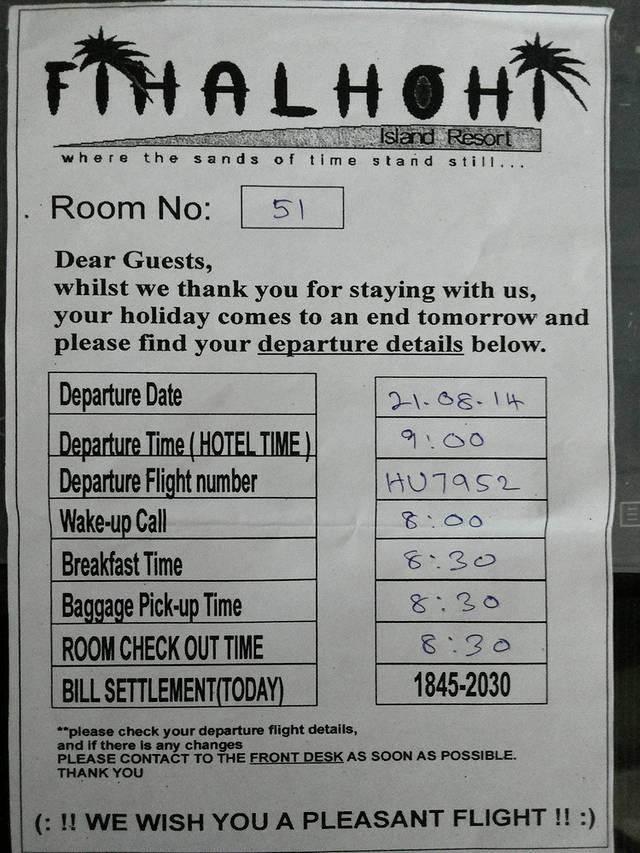 FIHALHOHI
Island Resort
where the sands of time stand still...
Room No: 51
Dear Guests,
whilst we thank you for staying with us,
your holiday comes to an end tomorrow and
please find your departure details below.
Departure Date 21.08.14
Departure Time ( HOTEL TIME ) 9:00
Departure Flight number HU7952
Wake-up Call 8:00
Breakfast Time 8:30
Baggage Pick-up Time 8:30
ROOM CHECK OUT TIME 8:30
BILL SETTLEMENT(TODAY) 1845-2030
**please check your departure flight details,
and if there is any changes
PLEASE CONTACT TO THE FRONT DESK AS SOON AS POSSIBLE.
THANK YOU
(: !! WE WISH YOU A PLEASANT FLIGHT !! :)